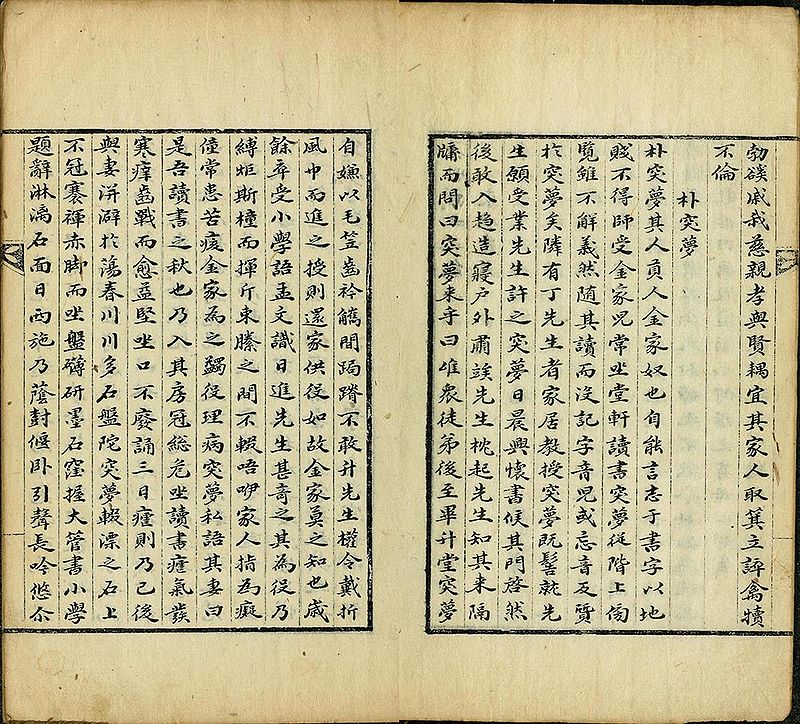 勃磎戚哉慈親孝與賢耦宜其家人取箕立誶禽犢
不倫
朴突夢
朴突夢其人貢人金家奴也自能言志于書字以地
賤不得師受金家児常坐堂軒讀書突夢從階上傍
覽雖不解義然随其讀而沒記字音児或忘音反質
於突夢矣隣有丁先生者家居教授突夢既髻就先
生願受業先生許之突夢日晨興懷書候其門啓然
後敢入趋造寢戶外肅竢先生枕起先生知其来隔
牖而問曰突夢来乎曰唯衆徒弟後至畢升堂突夢
自嫌以毛笠齒衿觿間跼蹐不敢升先生權令戴折
風巾而進之授則還家供役如故金家莫之知也歲
餘卒受小學語孟文識日進先生甚奇之其為役乃
縛炬斯橦而揮斤束縢之間不輟唔咿家人指為癡
僮常患苦痎金家為之蠲役理病突夢私語其妻曰
是吾讀書之秋也乃入其房冠總危坐讀書瘧氣發
寒痒齒戰而愈益堅坐口不廢誦三日瘧則乃已後
與妻洴澼於蕩春川川多石盤陀突夢輟漂之石上
不冠褰褌赤脚而坐盤礴研墨石窪握大管書小學
題辭淋漓石面日西施乃蔭封偃臥引聲長吟悠尒